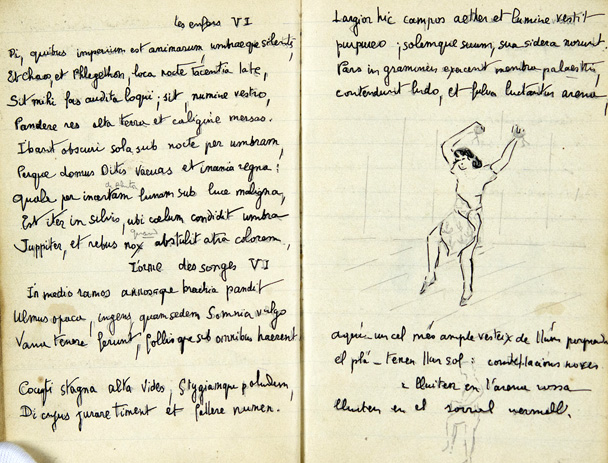 les enfers VI
Di, quibus imperium est animarum, umbraeque silentes
Et Chaos, et Phlegethon, loca nocte tacentia late,
Sit mihi fas audita loqui; sit, numine vestro,
Pandere res alta terra et caligine mersas.
Ibant obscuri sola sub nocte per umbram,
Perque domus Ditis vacuas et inania regna:
quale per incertam lunam sub luce maligna,
Est iter in silvis, ubi coelum condidit umbra
Juppiter, et rebus nox abstulit atra colorem.
des songes VI
In medio ramos annosaque brachia pandit
Ulmus opaca, ingens, quam sedem Somnia vulgo
Vana tenere ferunt, foliisque sub omnibus haerent
Cocyti stagna alta vides, Stygiamque paludem,
Di cujus jurare timent et fallere numen.
Largior hic campos aether et lumine vestit
purpureo; solemque suum, sua sidera norunt.
Pars in gramineis exercent membra palaestris,
contendunt ludo, et fulva luctantur arena,
Aquí un cel més ample vesteix de llum
el pla - tenen llur sol: constel·lacions noves
lluiten en l'arena rossa
lluiten en el sorral vermell.